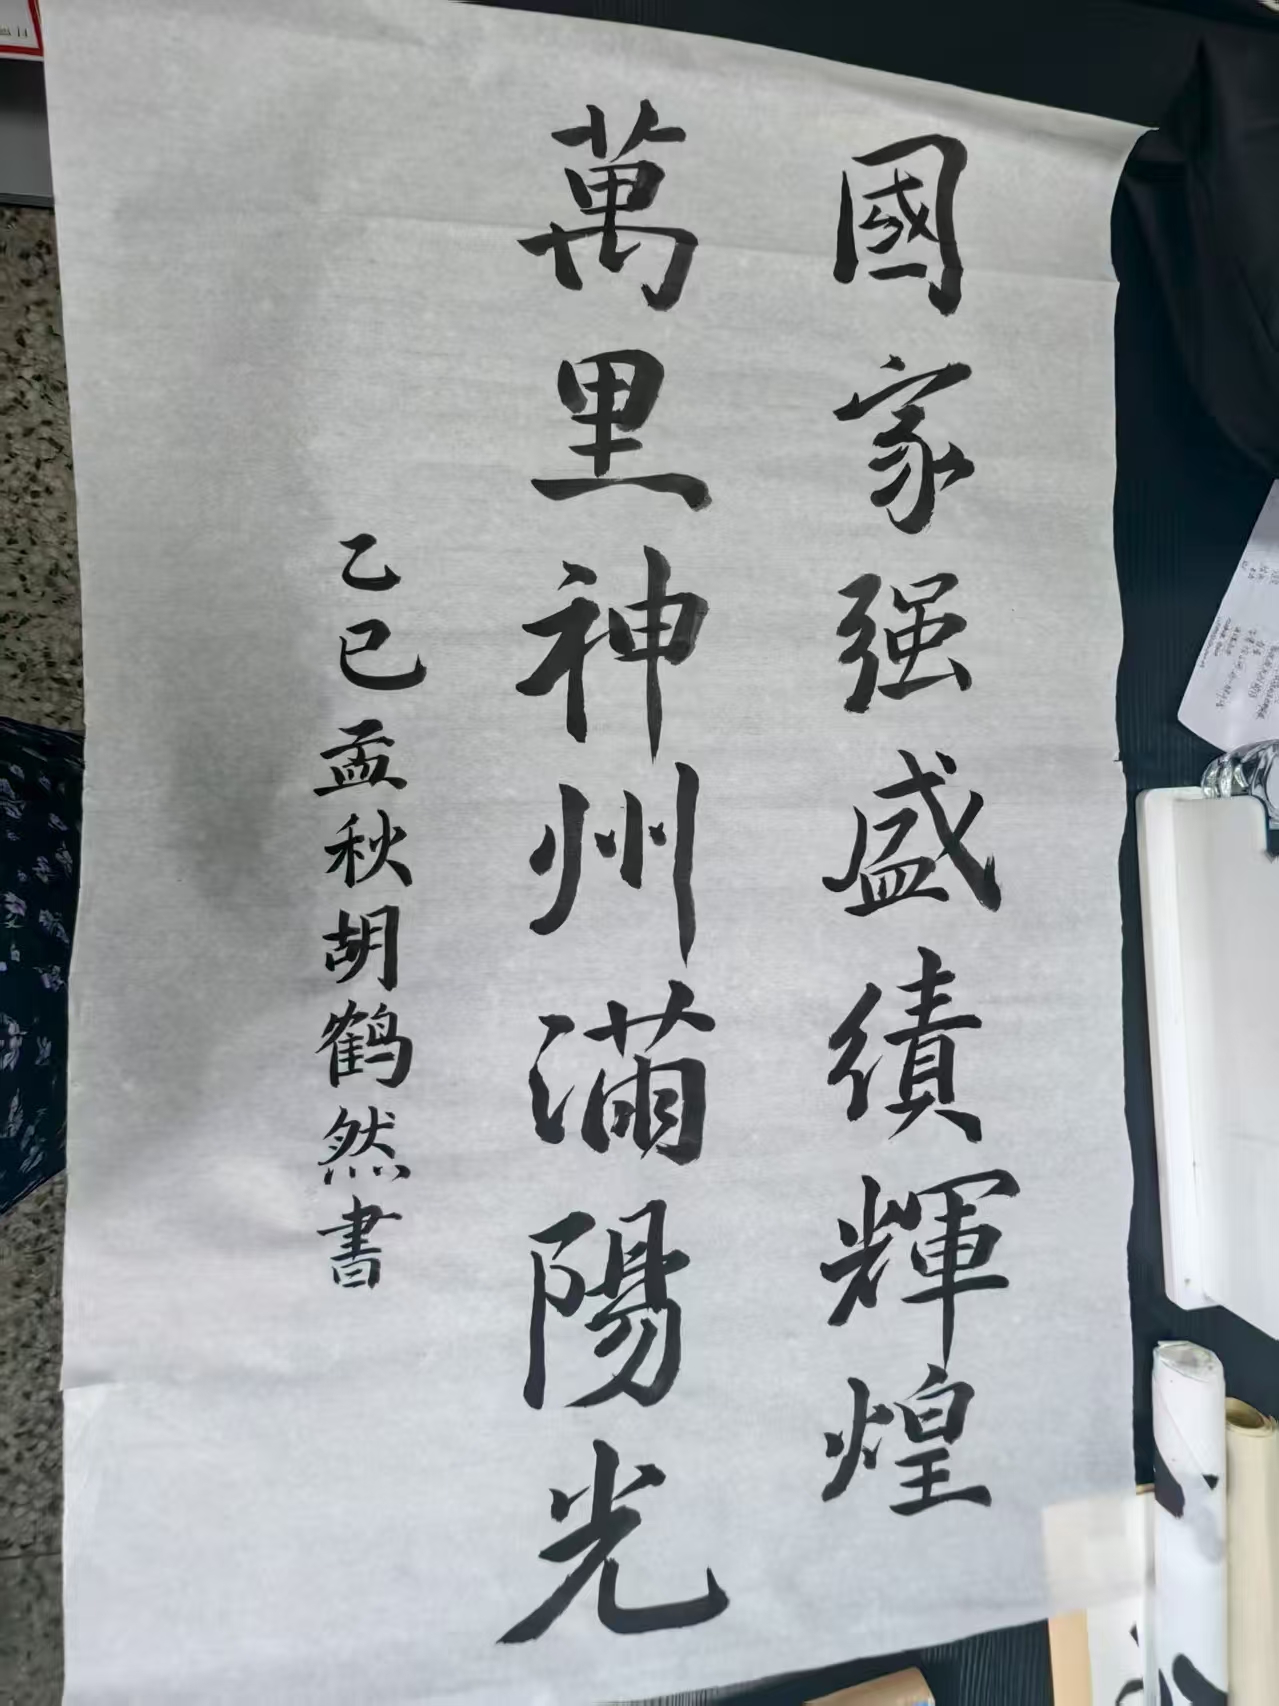 國家强盛績輝煌
萬里神州滿陽光
乙巳孟秋胡鹤然書